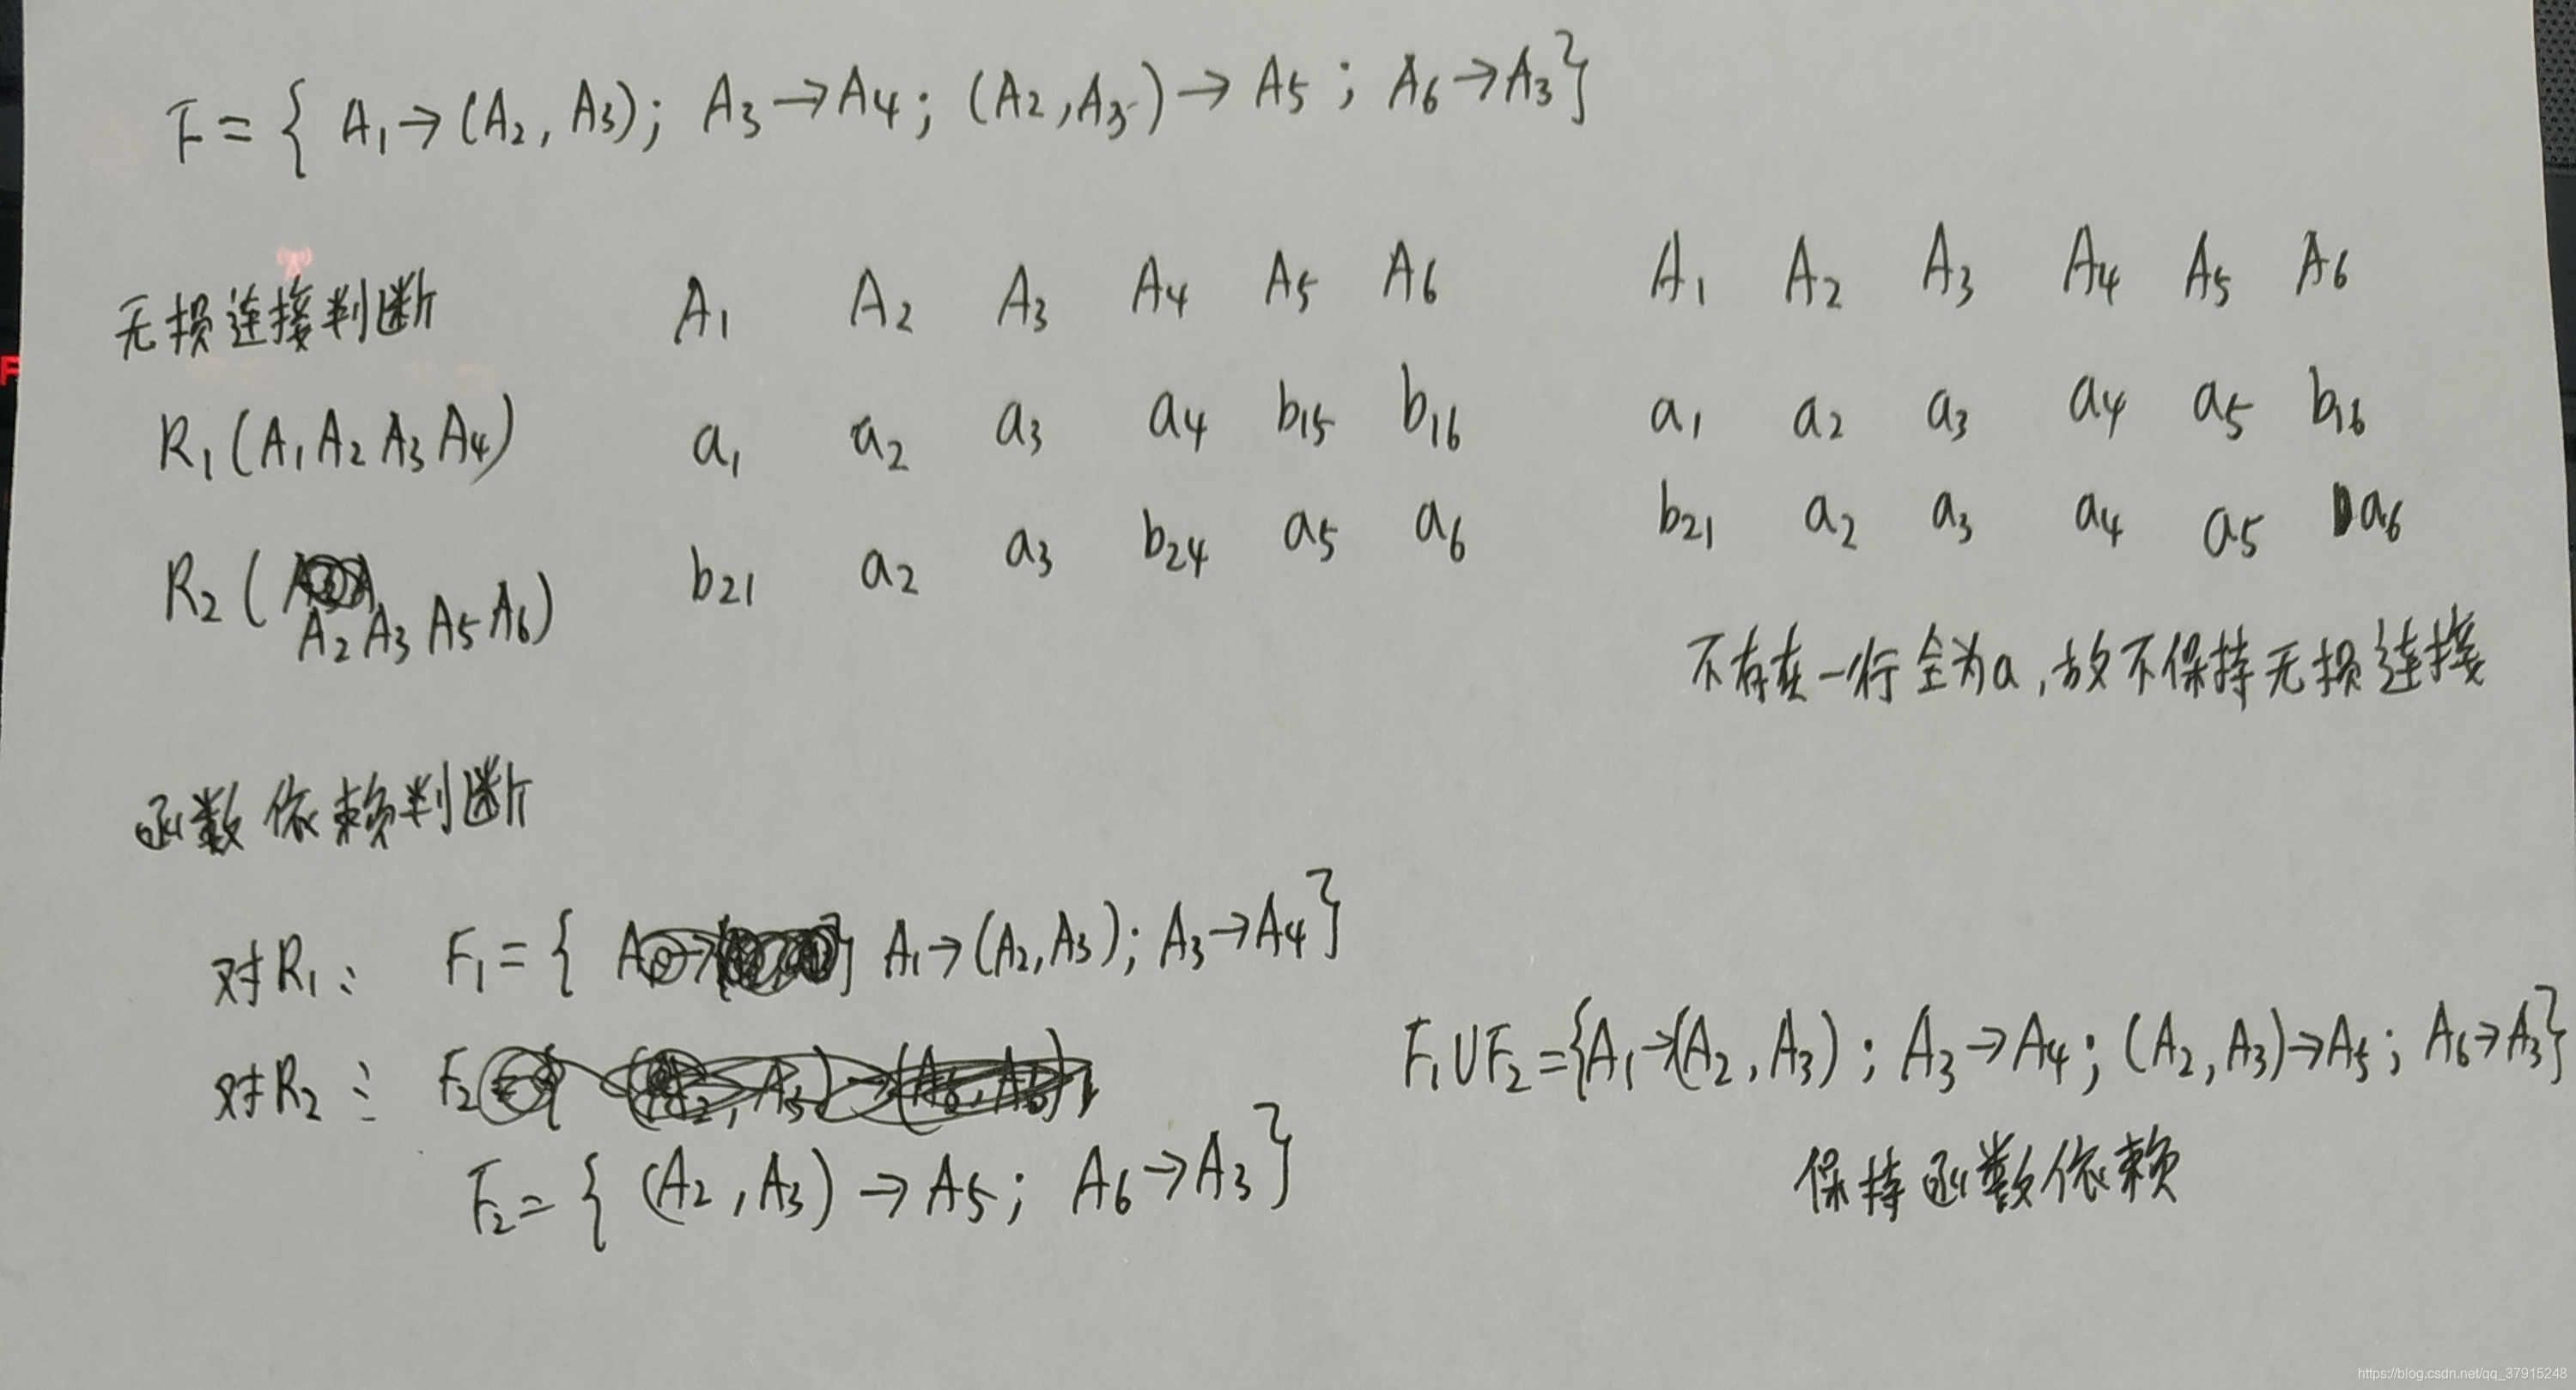 F = { A₁→(A₂, A₃); A₃→A₄; (A₂,A₃)→A₅; A₆→A₃}
无损连接判断 A₁ A₂ A₃ A₄ A₅ A₆ A₁ A₂ A₃ A₄ A₅ A₆
R₁(A₁A₂A₃A₄) a₁ a₂ a₃ a₄ b₁₅ b₁₆ a₁ a₂ a₃ a₄ a₅ b₁₆
R₂(A₂A₃A₅A₆) b₂₁ a₂ a₃ b₂₄ a₅ a₆ b₂₁ a₂ a₃ a₄ a₅ a₆
不存在一行全为a,故不保持无损连接
函数依赖判断
对R₁: F₁= { A₁→(A₂,A₃); A₃→A₄}
对R₂: F₂
F₂= { (A₂,A₃)→A₅; A₆→A₃}
F₁∪F₂={A₁→(A₂,A₃); A₃→A₄; (A₂,A₃)→A₅; A₆→A₃}
保持函数依赖
https://blog.csdn.net/qq_37915248